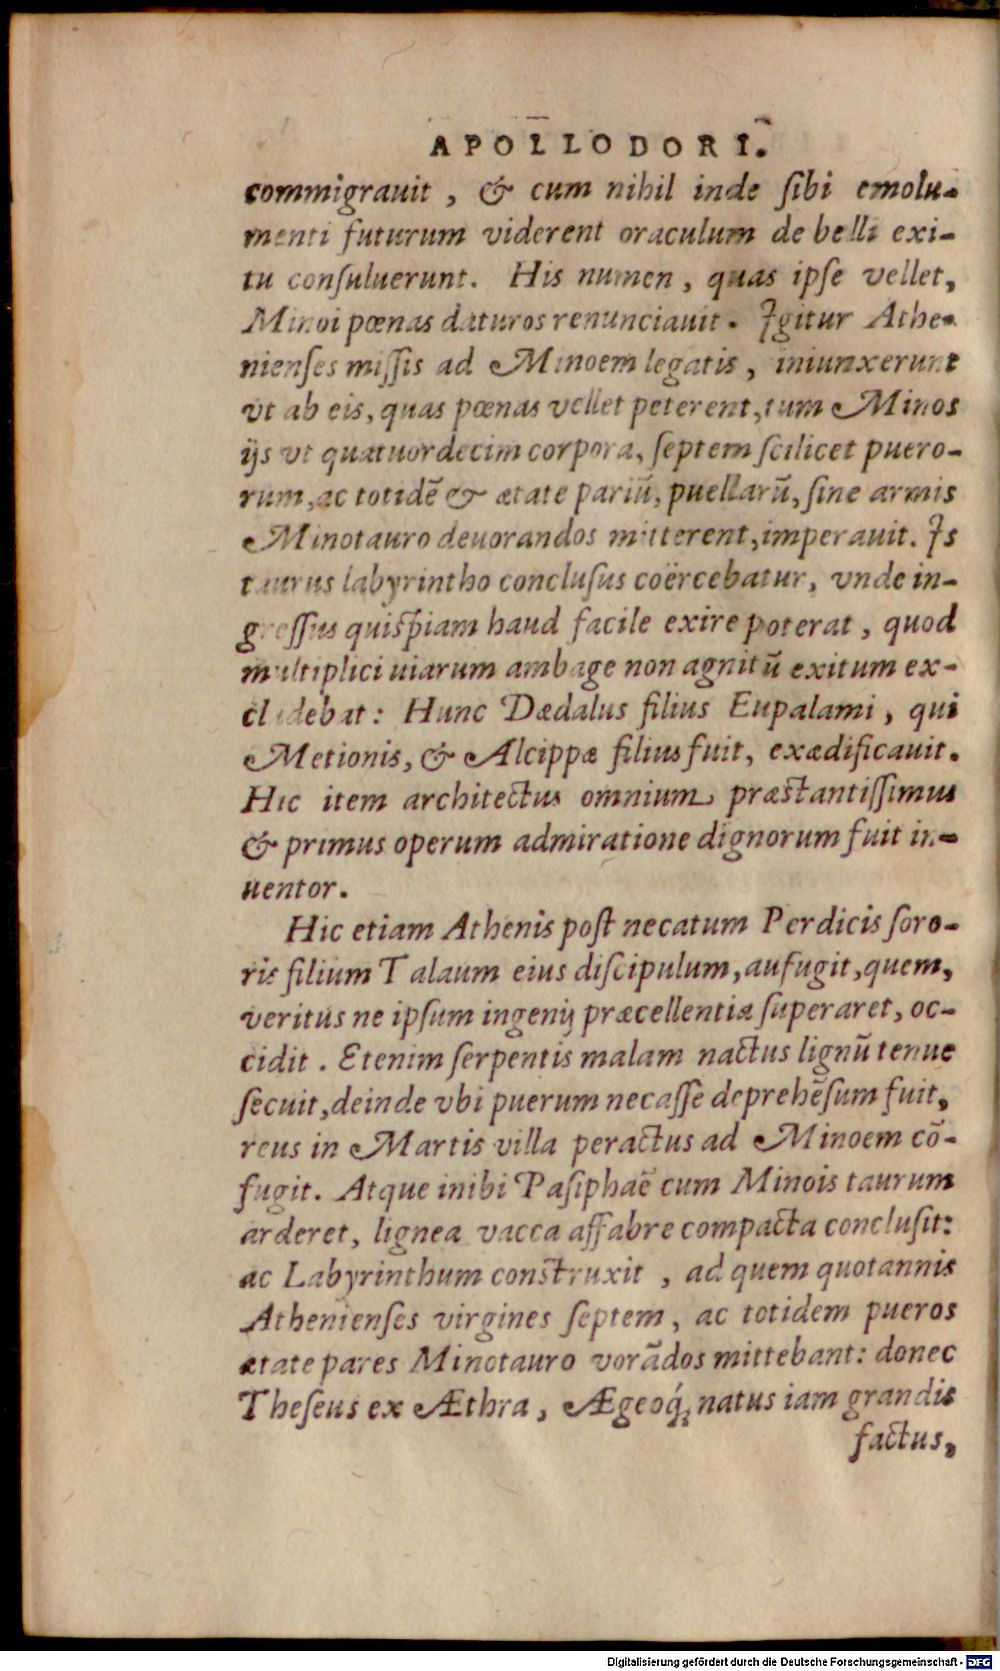 APOLLODORI.
commigrauit, & cum nihil inde ſibi emolu-
menti futurum viderent oraculum de belli exi-
tu conſuluerunt. His numen, quas ipſe vellet,
Minoi pœnas daturos renunciauit. Igitur Athe-
nienſes miſſis ad Minoem legatis, iniunxerunt
vt ab eis, quas pœnas vellet peterent, tum Minos
ijs vt quatuordecim corpora, ſeptem ſcilicet puero-
rum, ac totidē & ætate pariū, puellarū, ſine armis
Minotauro deuorandos mitterent, imperauit. Is
taurus labyrintho concluſus coërcebatur, vnde in-
greſſus quiſpiam haud facile exire poterat, quod
multiplici uiarum ambage non agnitū exitum ex-
cludebat: Hunc Dædalus filius Eupalami, qui
Metionis, & Alcippæ filius fuit, exædificauit.
Hic item architectus omnium præſtantiſſimus
& primus operum admiratione dignorum fuit in-
uentor.
Hic etiam Athenis poſt necatum Perdicis ſoro-
ris filium Talaum eius diſcipulum, aufugit, quem,
veritus ne ipſum ingenij præcellentia ſuperaret, oc-
cidit. Etenim ſerpentis malam nactus lignū tenue
ſecuit, deinde vbi puerum necaſſe deprehēſum fuit,
reus in Martis villa peractus ad Minoem cō-
fugit. Atque inibi Paſiphaë cum Minois taurum
arderet, lignea vacca affabre compacta concluſit:
ac Labyrinthum conſtruxit, ad quem quotannis
Athenienſes virgines ſeptem, ac totidem pueros
ætate pares Minotauro vorādos mittebant: donec
Theſeus ex Æthra, Ægeoq́; natus iam grandis
factus,
Digitalisierung gefördert durch die Deutsche Forschungsgemeinschaft - DFG